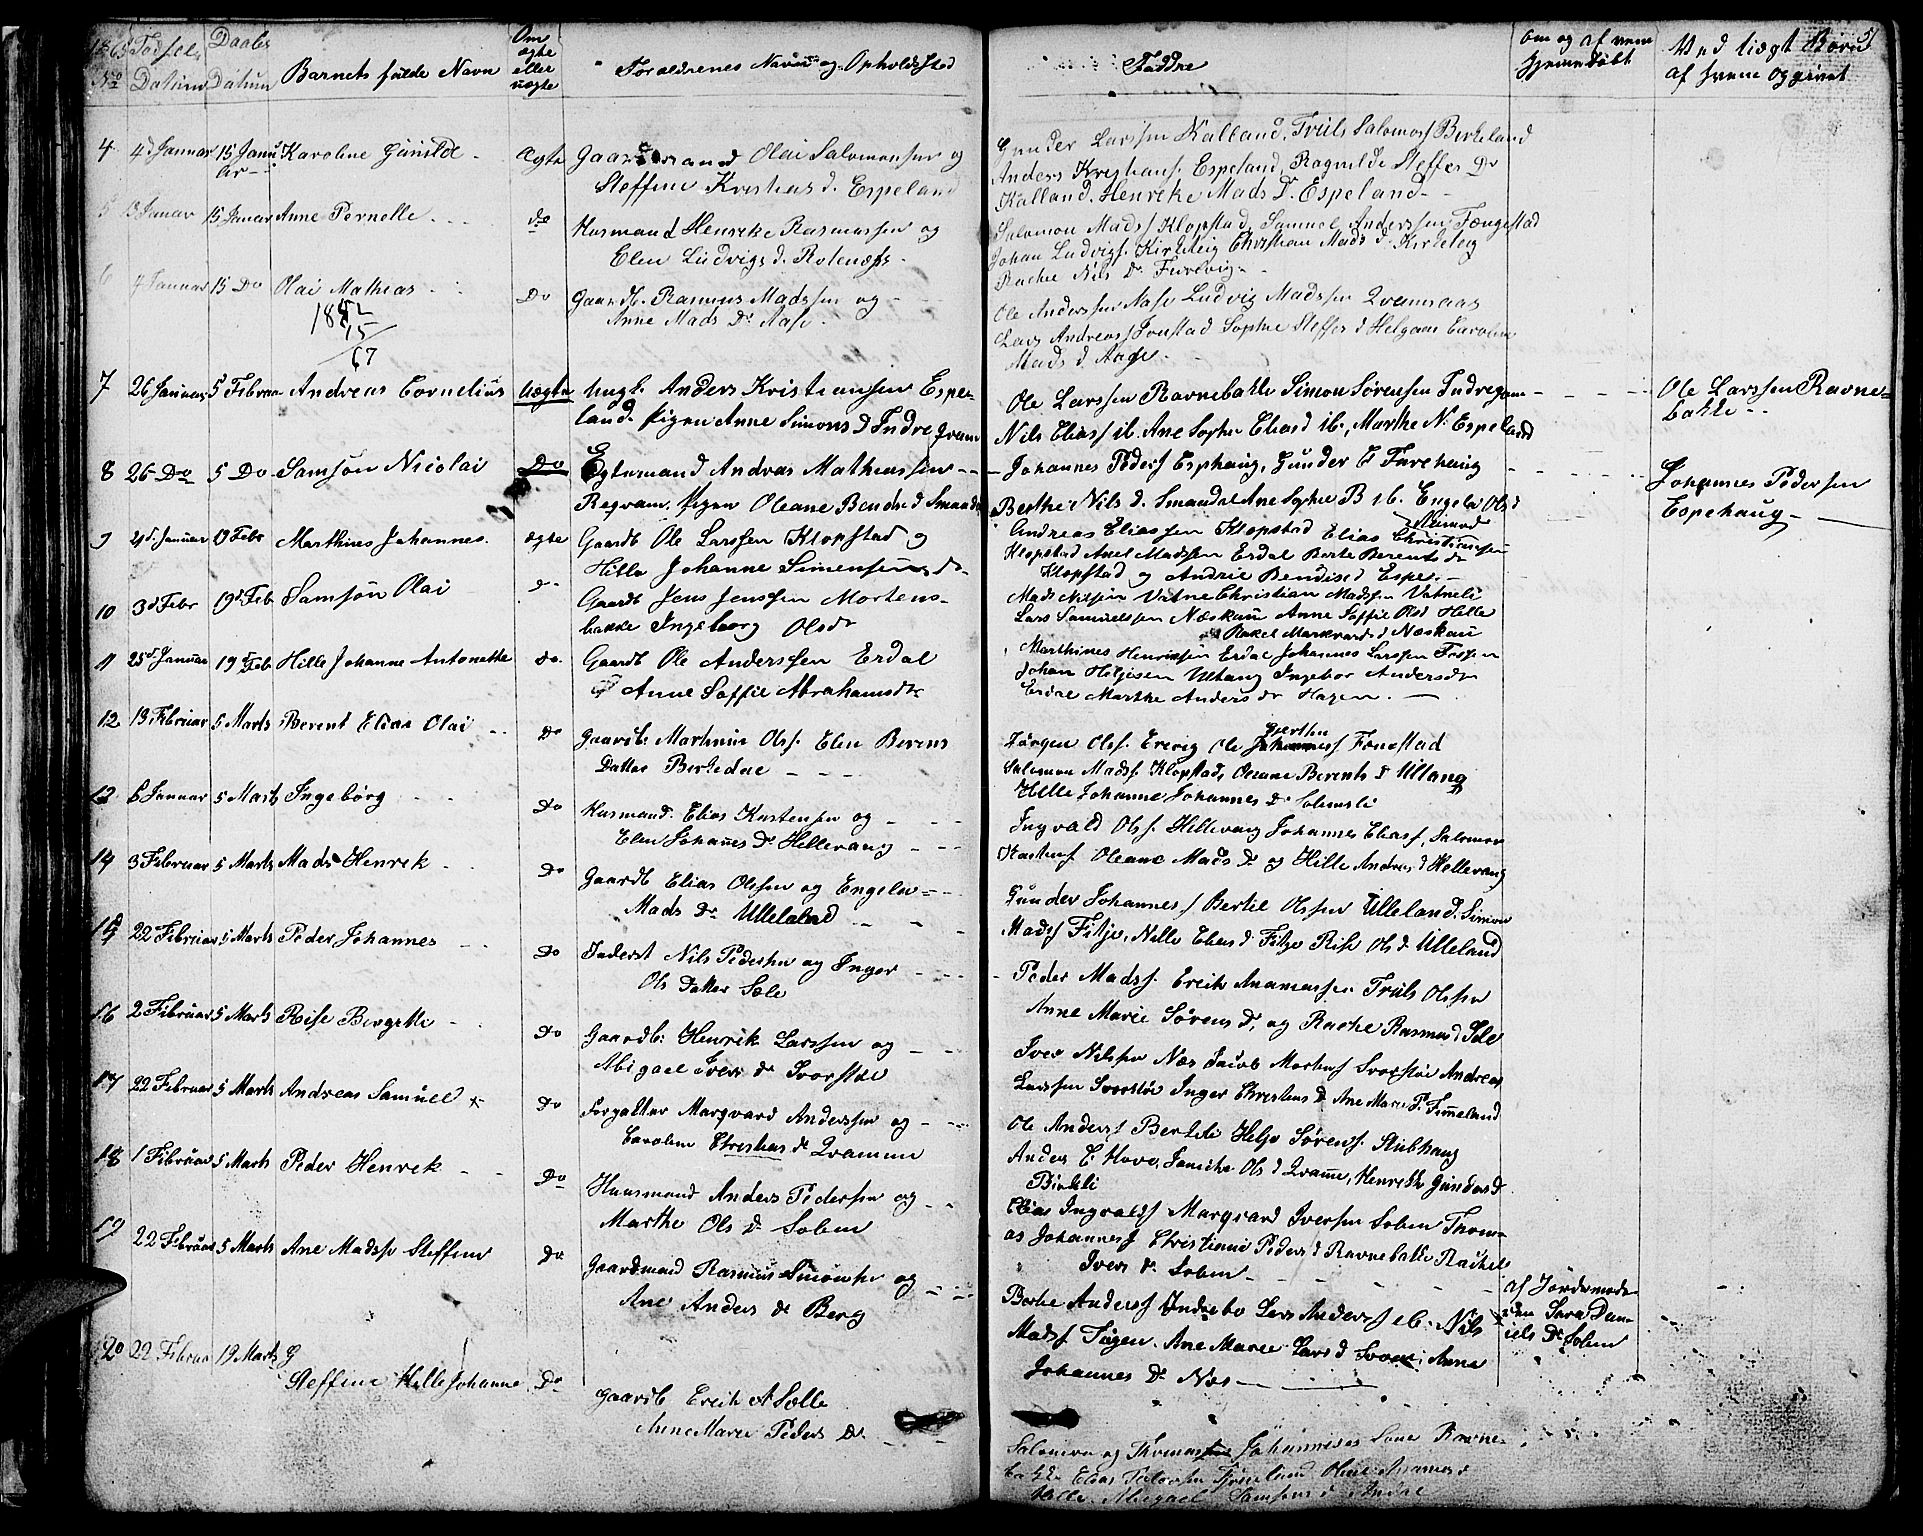 1865 Fødsels Daabs Om
No Datum Datum Barnets fulde Navn ægte eller uægte Foreldrenes Navn og Opholdssted
Faddre
Om og af hvem hjemmedøbt
Ved uægt Børn
af hvem oggivet
4 4d Januar 15 Janu Karoline Gunilde Ægte Gaardmand Olai Salomonsen og
ar
Steffine Kristians d. Espeland
Gunder Larssen Kalland, Truls Salomos Birkeland
Anders Kristians. Espeland Ragnilde Steffes Dr
Kalland. Henrike Mads D. Espeland
5 Januar 15 Januar Anne Pernelle do Husmand Henrike Rasmussen og
Elen Ludvigs d. Rotenæs
Salomon Mads Klopstad, Samuel Anderssen Fængestad
Johan Ludvigs. Kirkleig Christian Mads d. Kirkleig
Rachel Nils Dr Furevig
6 4 Januar 15 Do Olai Mathias Do Gaardb. Rasmus Madssen og
Anne Mads Dr Aase
Ole Anderssen Aase Ludvig Madssen Qvamsaas
Lars Andreas Fonstad Sophie Steffes d Helgaen Caroline
Mads d Aase
1852
15
67
7 26 Januar 5 Februar Andreas Cornelius Uægte Ungk. Anders Kristiansen Espe-
land. Pigen Anne Simons d Indre Qvam
Ole Larssen Ravnebakke Simon Sørensen Indreqvam
Nils Elias ib. Ane Sophie Elias d ib., Marthe N. Espeland
Ole Larssen Ravne-
bakke
8 26 Do 5 Do Samsøn Nicolai Do Egtemand Andras Mathiassen
Bogvam. Pigen Oleane Bendix d Smaadal
Johannes Peders Esphaug, Gunder E Farehaug
Berthe Nils d. Smaadal Ane Sophie B ib. Engele Ols d
Johannes Pedersen
Espehaug
9 2d Januar 19 Febr Marthines Johannes. Ægte Gaardb Ole Larssen Klopstad og
Hille Johanne Simensens dr
Andreas Eliassen Klopstad Elias Christiansen
Klopstad Axel Madssen Erdal Borte Berents dr
Klopstad og Andrie Bendixsd Espe
10 3d Febr 19d Feb Samsøn Olai d Gaardb Jens Jenssen Mortens-
bakke Ingeborg Olsdr
Mads Nilssen Vatne Christian Madssen Vatneli
Lars Samuelssen Næskau Anne Saffie Olsd Helle
Rakel Markvards d Næskau
11 25d Januar 19d Feb Hille Johanne Antonette Do Gaardb Ole Anderssen Erdal
og Anne Saffie Abrahamsdr
Marthines Henriksen Erdal Johannes Larssen Fossen
Johan Helgesen Ulltang Ingebor Andersdr
Erdal Marthe Anders dr Hagen
12 13 Februar 5 Marts Berent Elias Olai Do Gaardb: Martinus Ols. Elen Berens
Datter Birkedne
Jørgen Ols. Erevig Ole Gjerthn Johannes Fonestad
Salomon Mads. Klopstad, Oleane Berents d Ulltang
Hille Johanne Johannes Dr Solemsli
13 6 Januar 5 Marts Ingebørg Do Husmand. Elias Karstensen og
Elen Johanes Dr Hellevang
Ingvald Ols. Hellevang Johannes Elias, Salomon
Karstens Oleane Mads d. og Hille Andrs d Hellevang
14 3 Februar 5 Marts Mads Henrik Do Gaardb Elias Olssen og Engeln
Mads Dr Ulleland
Gunder Johannes Bertil Olssen Ulleland. Simon
Mads Fitje, Nille Elias d Fitje Rise Ols d Ulleland
15 22 Februar 5 Marts Peder Johannes Do Inderst Nils Pedersen og Inger
Ols Datter Sæle
Peder Mads. Erik Anamassen Truls Olssen
Anne Marie Sørens d, og Rachel Rasmus d Sæle
16 2 Februar 5 Marts Rise Bergitte Do Gaardb: Henrik Larssen og
Abigael Ivers dr Svorstøe
Iver Nilssen Næs Jacob Mortens Svorstøe Andreas
Larssen Svorstøe Inger Christens d Ane Marie P. Timeland
17 22 Februar 5 Marts Andreas Samuel Do Forgalter Marqvard Anderssen og
Caroline Christians dr Qvamme
Ole Anders Berkeli Helje Sørens. Stubhaug
Anders E Hove, Janike Ols d Qvamme, Henrikke Gunders d
Birkeli
18 1 Februar 5 Marts Peder Henrik Do Huusmand Anders Pedersen og
Marthe Ols d. Solem
Elias Ingvalds Marqvard Iversen Solem Thom-
as Johannes Christiane Peders d Ravnebakke Rachel
Ivers dr Solem
19 22 Februar 5 Marts Ane Madsse Steffine Do Gaardmand Rasmus Simonsen og
Ane Anders dr Berg
Berthe Anders Indrebø Lars Anders ib. Nils
Mads Tugen. Ane Marie Lars d Svoen, Anne
Johannes Dr Næs
af Jordemode-
ren Sara Dan-
iels Dr Solem
20 22 Februar 19 Marts
Steffine Hille Johanne Do Gaardb Erik A Sælle
Anne Marie Peders Dr
Salomon og Thomas Johannes Sønner Ravne-
bakke Elias
Abigael Samsons d Indre